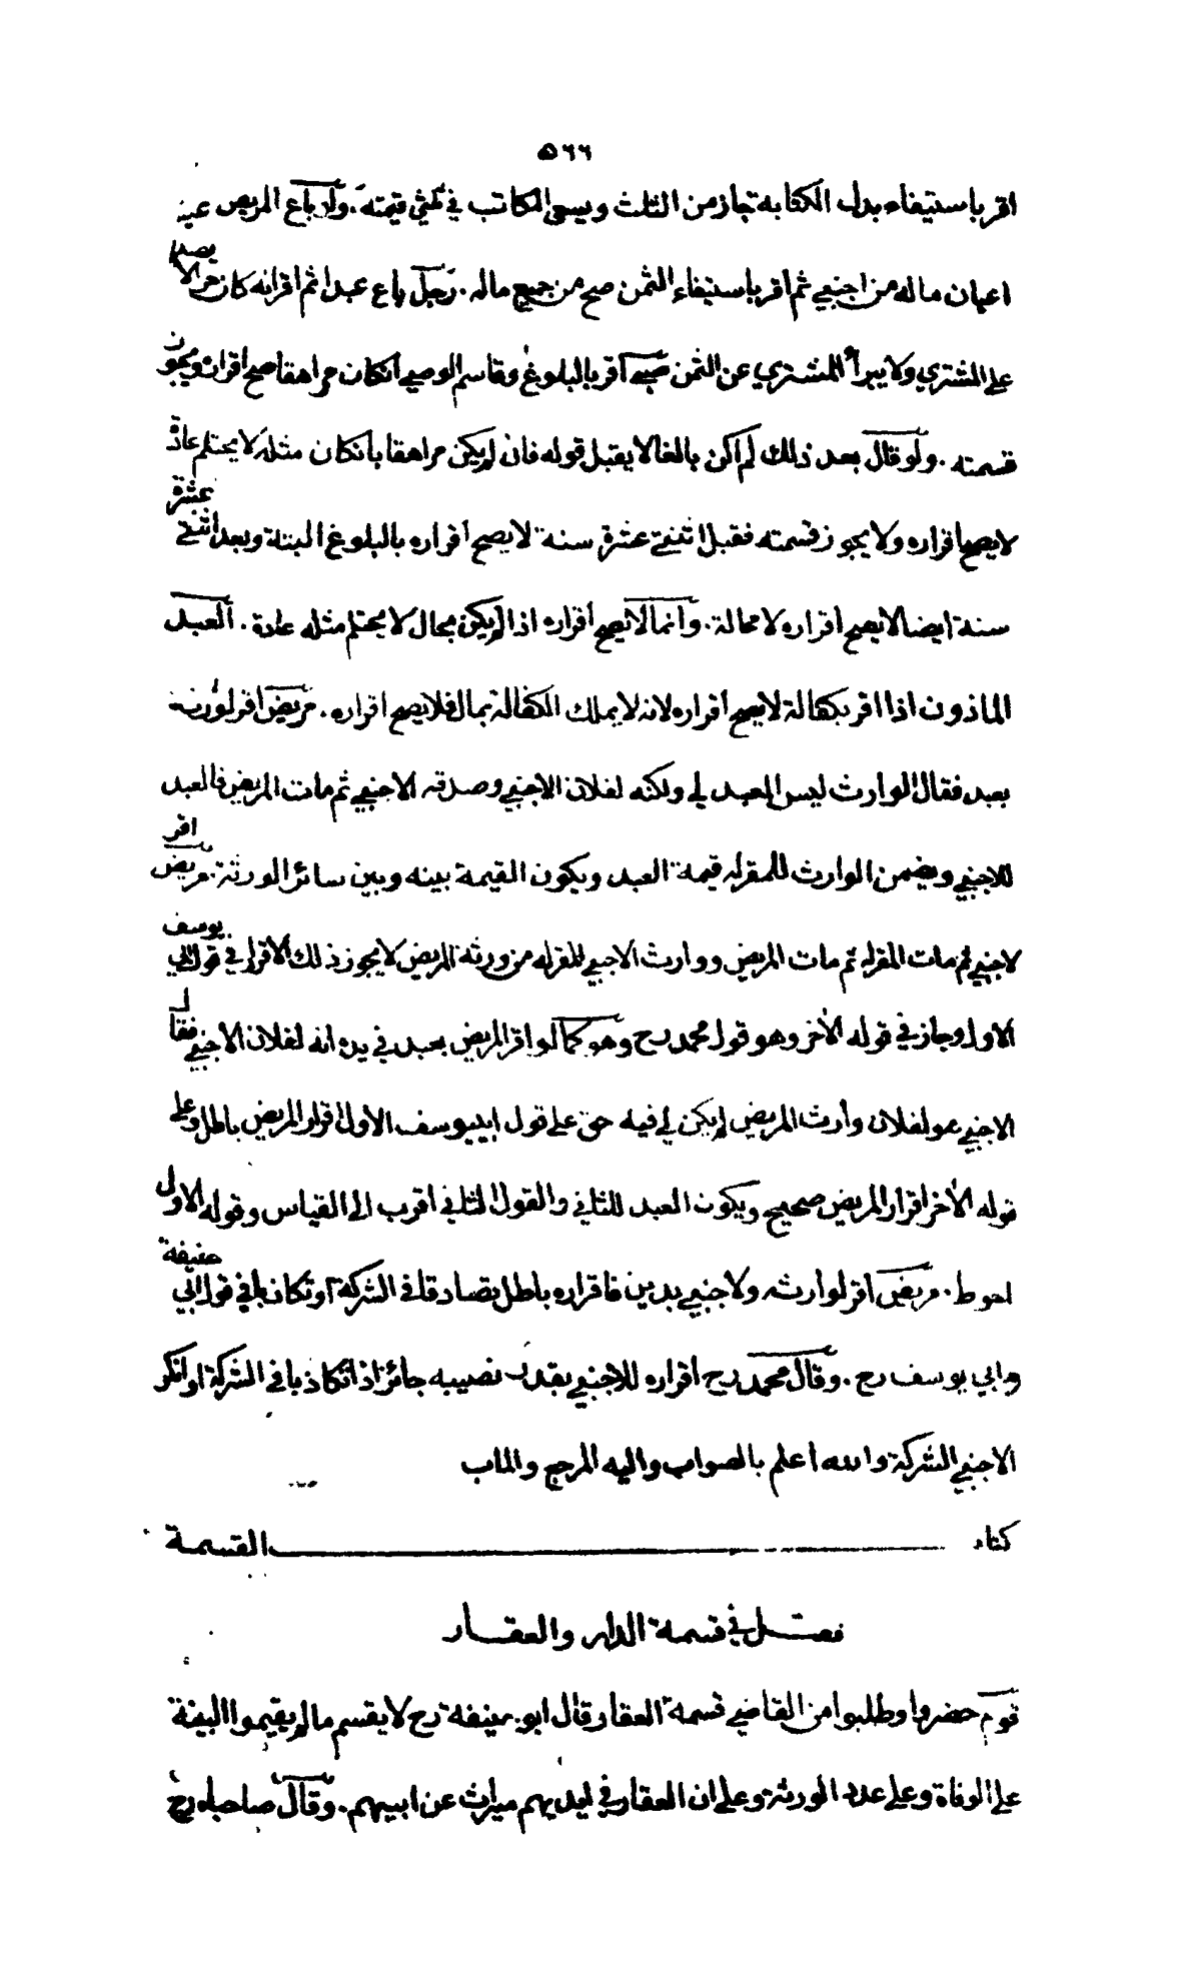 ٥٦٦
اقر باستيفاء بدل الكتابة جاز من الثلث ويسعى المكاتب في ثلثي قيمته . ولو باع المريض عينا
اعيان ماله من اجنبي ثم اقر باستيفاء الثمن صح من جميع ماله . رجل باع عبدا ثم اقر انه كان حر الا يصدق
على المشتري ولا يبرأ المشتري عن الثمن صبي اقر بالبلوغ وقاسم الوصي ان كان مراهقا صح اقراره ويجوز
قسمته . ولو قال بعد ذلك لم اكن بالغا لا يقبل قوله فان لم يكن مراهقا بان كان مثله لا يحتلم عادة
لا يصح اقراره ولا يجوز قسمته فقبل اثنتي عشرة سنة لا يصح اقراره بالبلوغ البتة وبعد اثنتي عشرة
سنة ايضا لا يصح اقراره لا محالة . وانما لا يصح اقراره اذا لم يكن بحال لا يحتلم مثله عادة . العبد
الماذون اذا اقر بكفالة لا يصح اقراره لانه لا يملك الكفالة بمال فلا يصح اقراره . مريض اقر لوارثه
بعبد فقال الوارث ليس العبد لي ولكنه لفلان الاجنبي وصدقه الاجنبي ثم مات المريض فالعبد
للاجنبي ويضمن الوارث للمقر له قيمة العبد ويكون القيمة بينه وبين سائر الورثة . مريض اقر
لاجنبي ثم مات المقر له ثم مات المريض ووارث الاجنبي المقر له من ورثة المريض لا يجوز ذلك الاقرار في قول ابي يوسف
الاول وجاز في قوله الأخر وهو قول محمد رح وهو كما لو اقر المريض بعبد في يده انه لفلان الاجنبي فقال
الاجنبي هو لفلان وارث المريض لم يكن لي فيه حق على قول ابي يوسف الاول اقرار المريض باطل وعلى
قوله الأخر اقرار المريض صحيح ويكون العبد للثاني والقول الثاني اقرب الى القياس وقوله الاول
احوط . مريض اقر لوارثه ولاجنبي بدين فاقراره باطل تصادقا في الشركة او تكاذبا في قول ابي حنيفة
وابي يوسف رح . وقال محمد رح اقراره للاجنبي بقدر نصيبه جائز اذا تكاذبا في الشركة او انكر
الاجنبي الشركة والله اعلم بالصواب واليه المرجع والماب
كتاب القسمة
فصل في قسمة الدار والعقار
قوم حضروا وطلبوا من القاضي قسمة العقار قال ابو حنيفة رح لا يقسم ما لم يقيموا البينة
على الوفاة وعلى عدد الورثة وعلى ان العقار في ايديهم ميراث عن ابيهم . وقال صاحباه رح